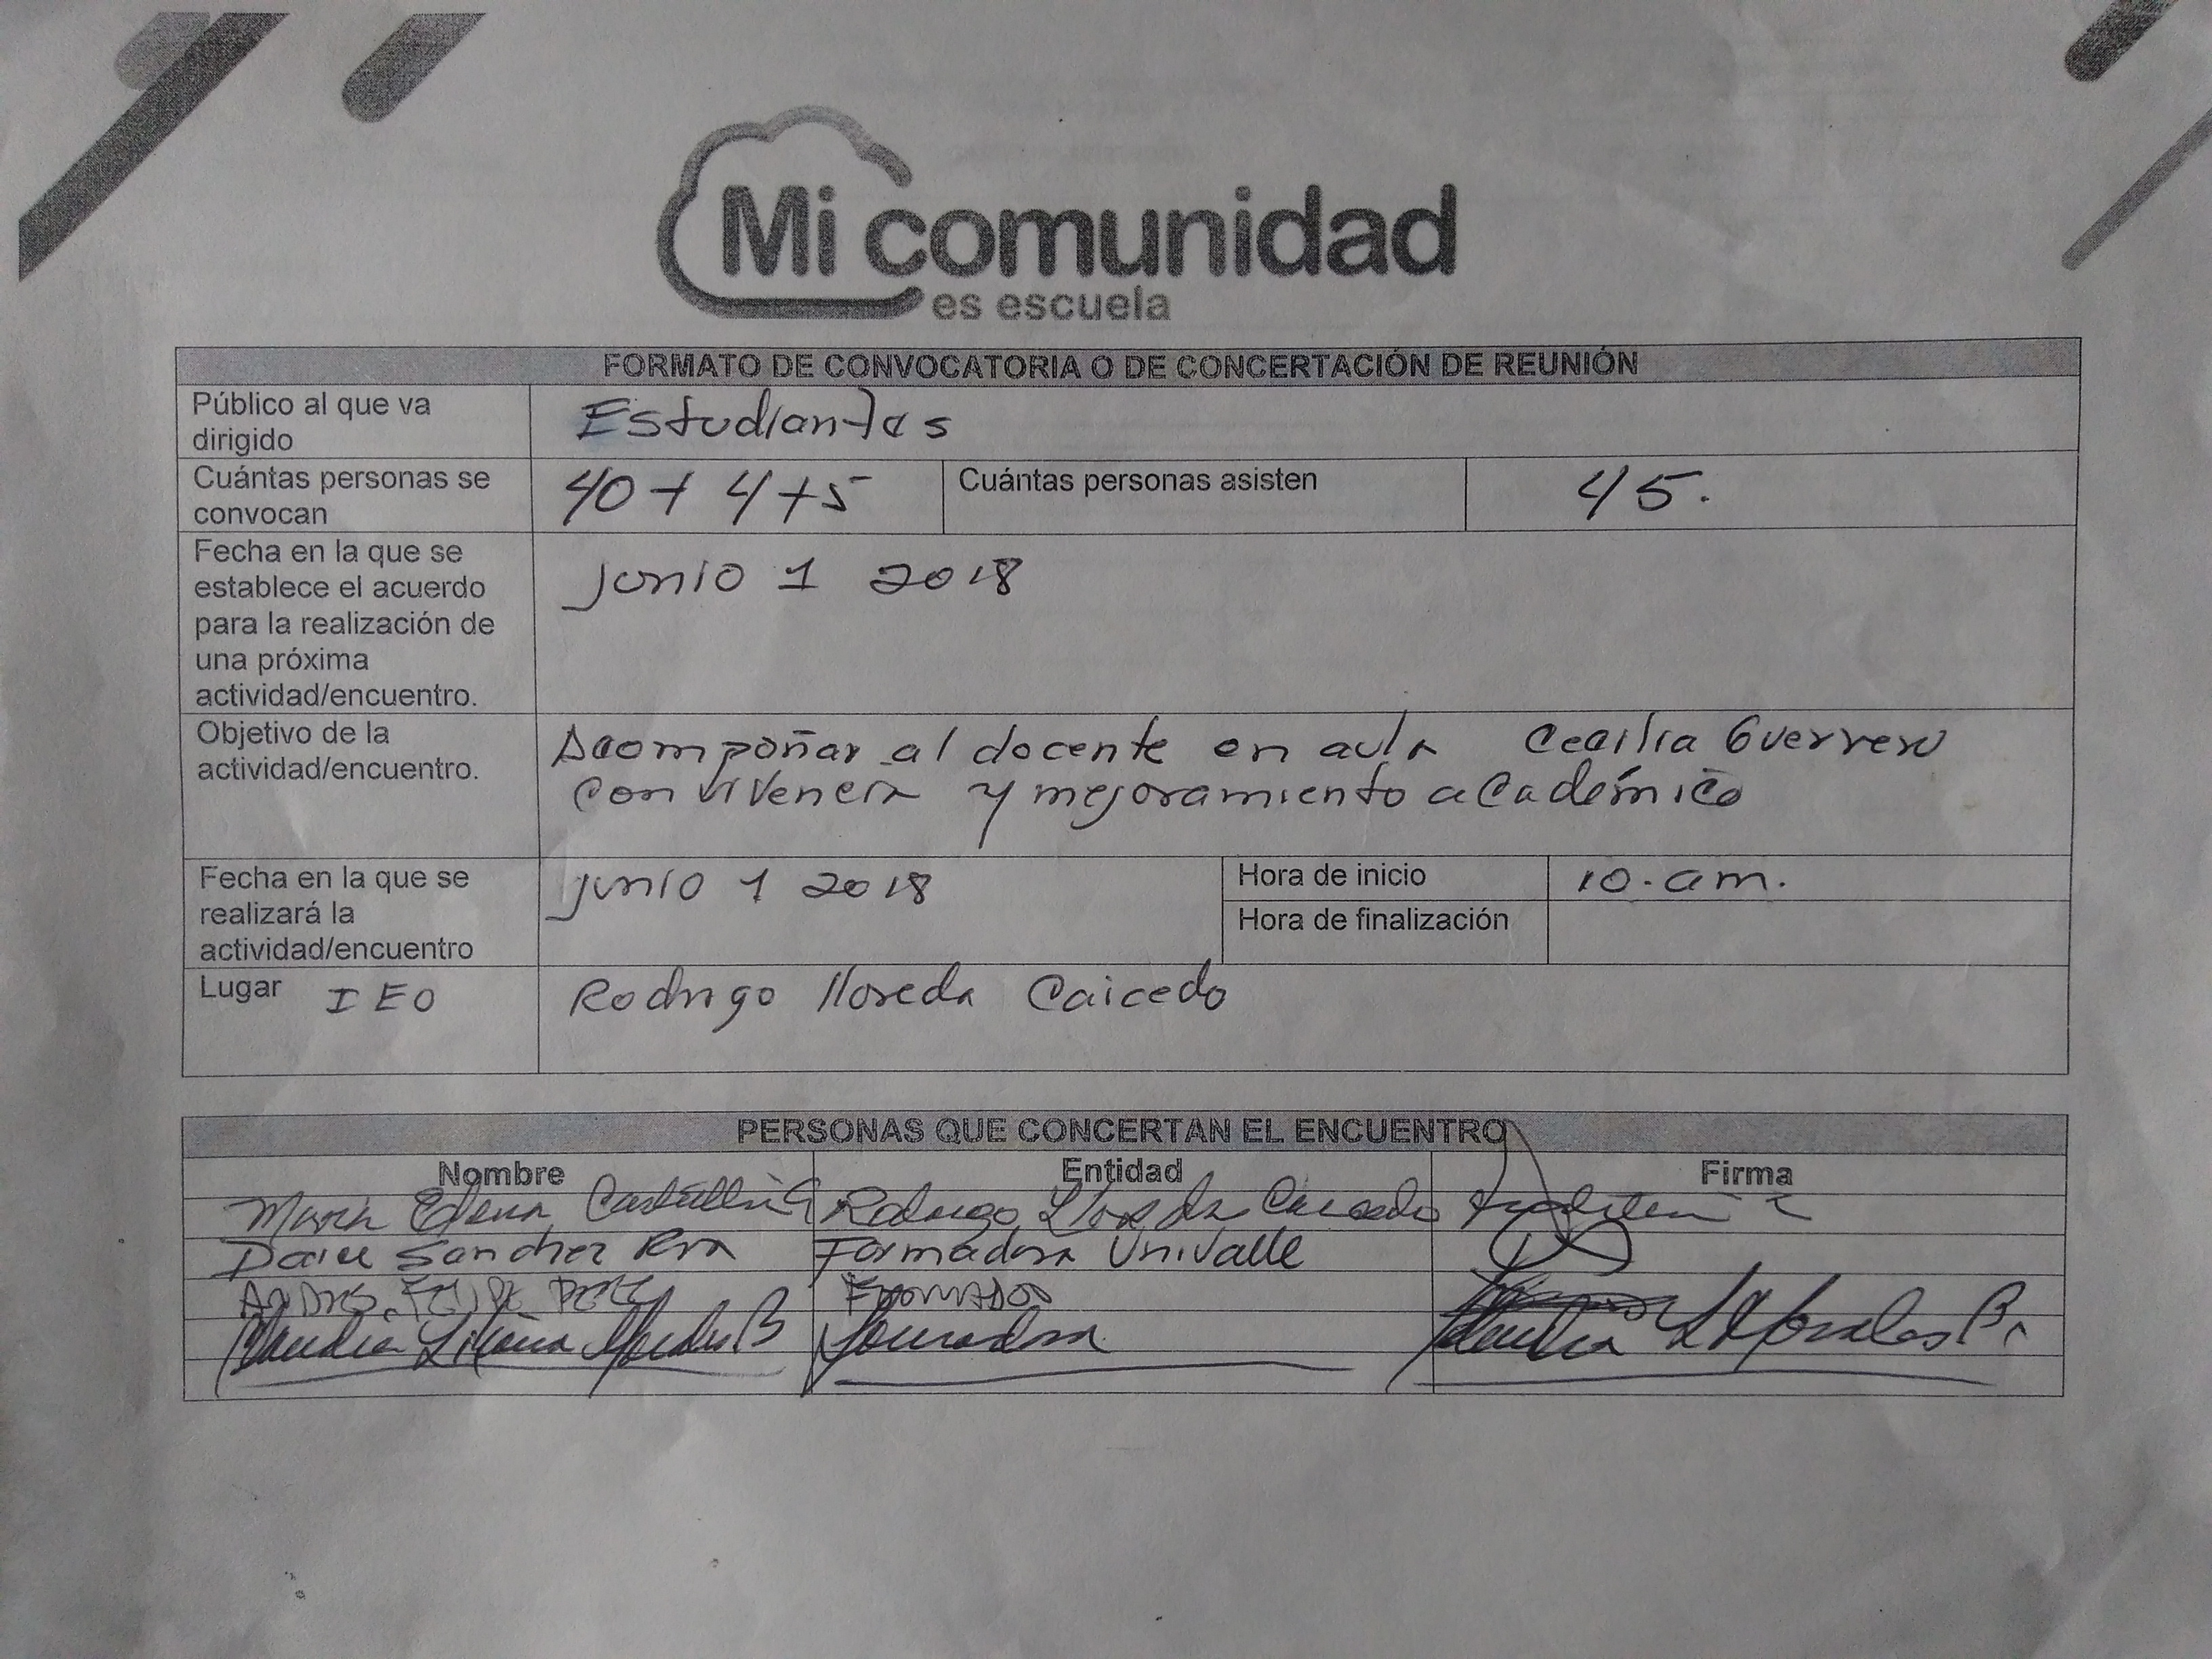 Mi comunidad
es escuela
FORMATO DE CONVOCATORIA O DE CONCERTACIÓN DE REUNIÓN
Público al que va
dirigido
Estudiantes
Cuántas personas se
convocan
40 + 4 + 5
Cuántas personas asisten
45.
Fecha en la que se
establece el acuerdo
para la realización de
una próxima
actividad/encuentro.
Junio 1 2018
Objetivo de la
actividad/encuentro.
Acompañar al docente en aula Cecilia Guerrero
Convivencia y mejoramiento académico
Fecha en la que se
realizará la
actividad/encuentro
junio 1 2018
Hora de inicio
10. am.
Hora de finalización
Lugar IEO
Rodrigo lloreda Caicedo
PERSONAS QUE CONCERTAN EL ENCUENTRO
Nombre Entidad Firma
Maria Elena Rodrigo Lloreda Caicedo
Sanchez Formadora Univalle
Andres Felipe Formador
Claudia Liliana B Morales B